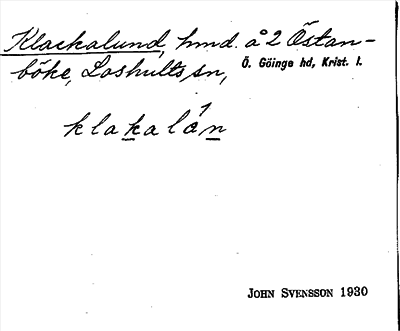 Klackalund, hmd. å 2 Östan-
böke, Loshults sn, Ö. Göinge hd, Krist. l.
klakalán
JOHN SVENSSON 1930